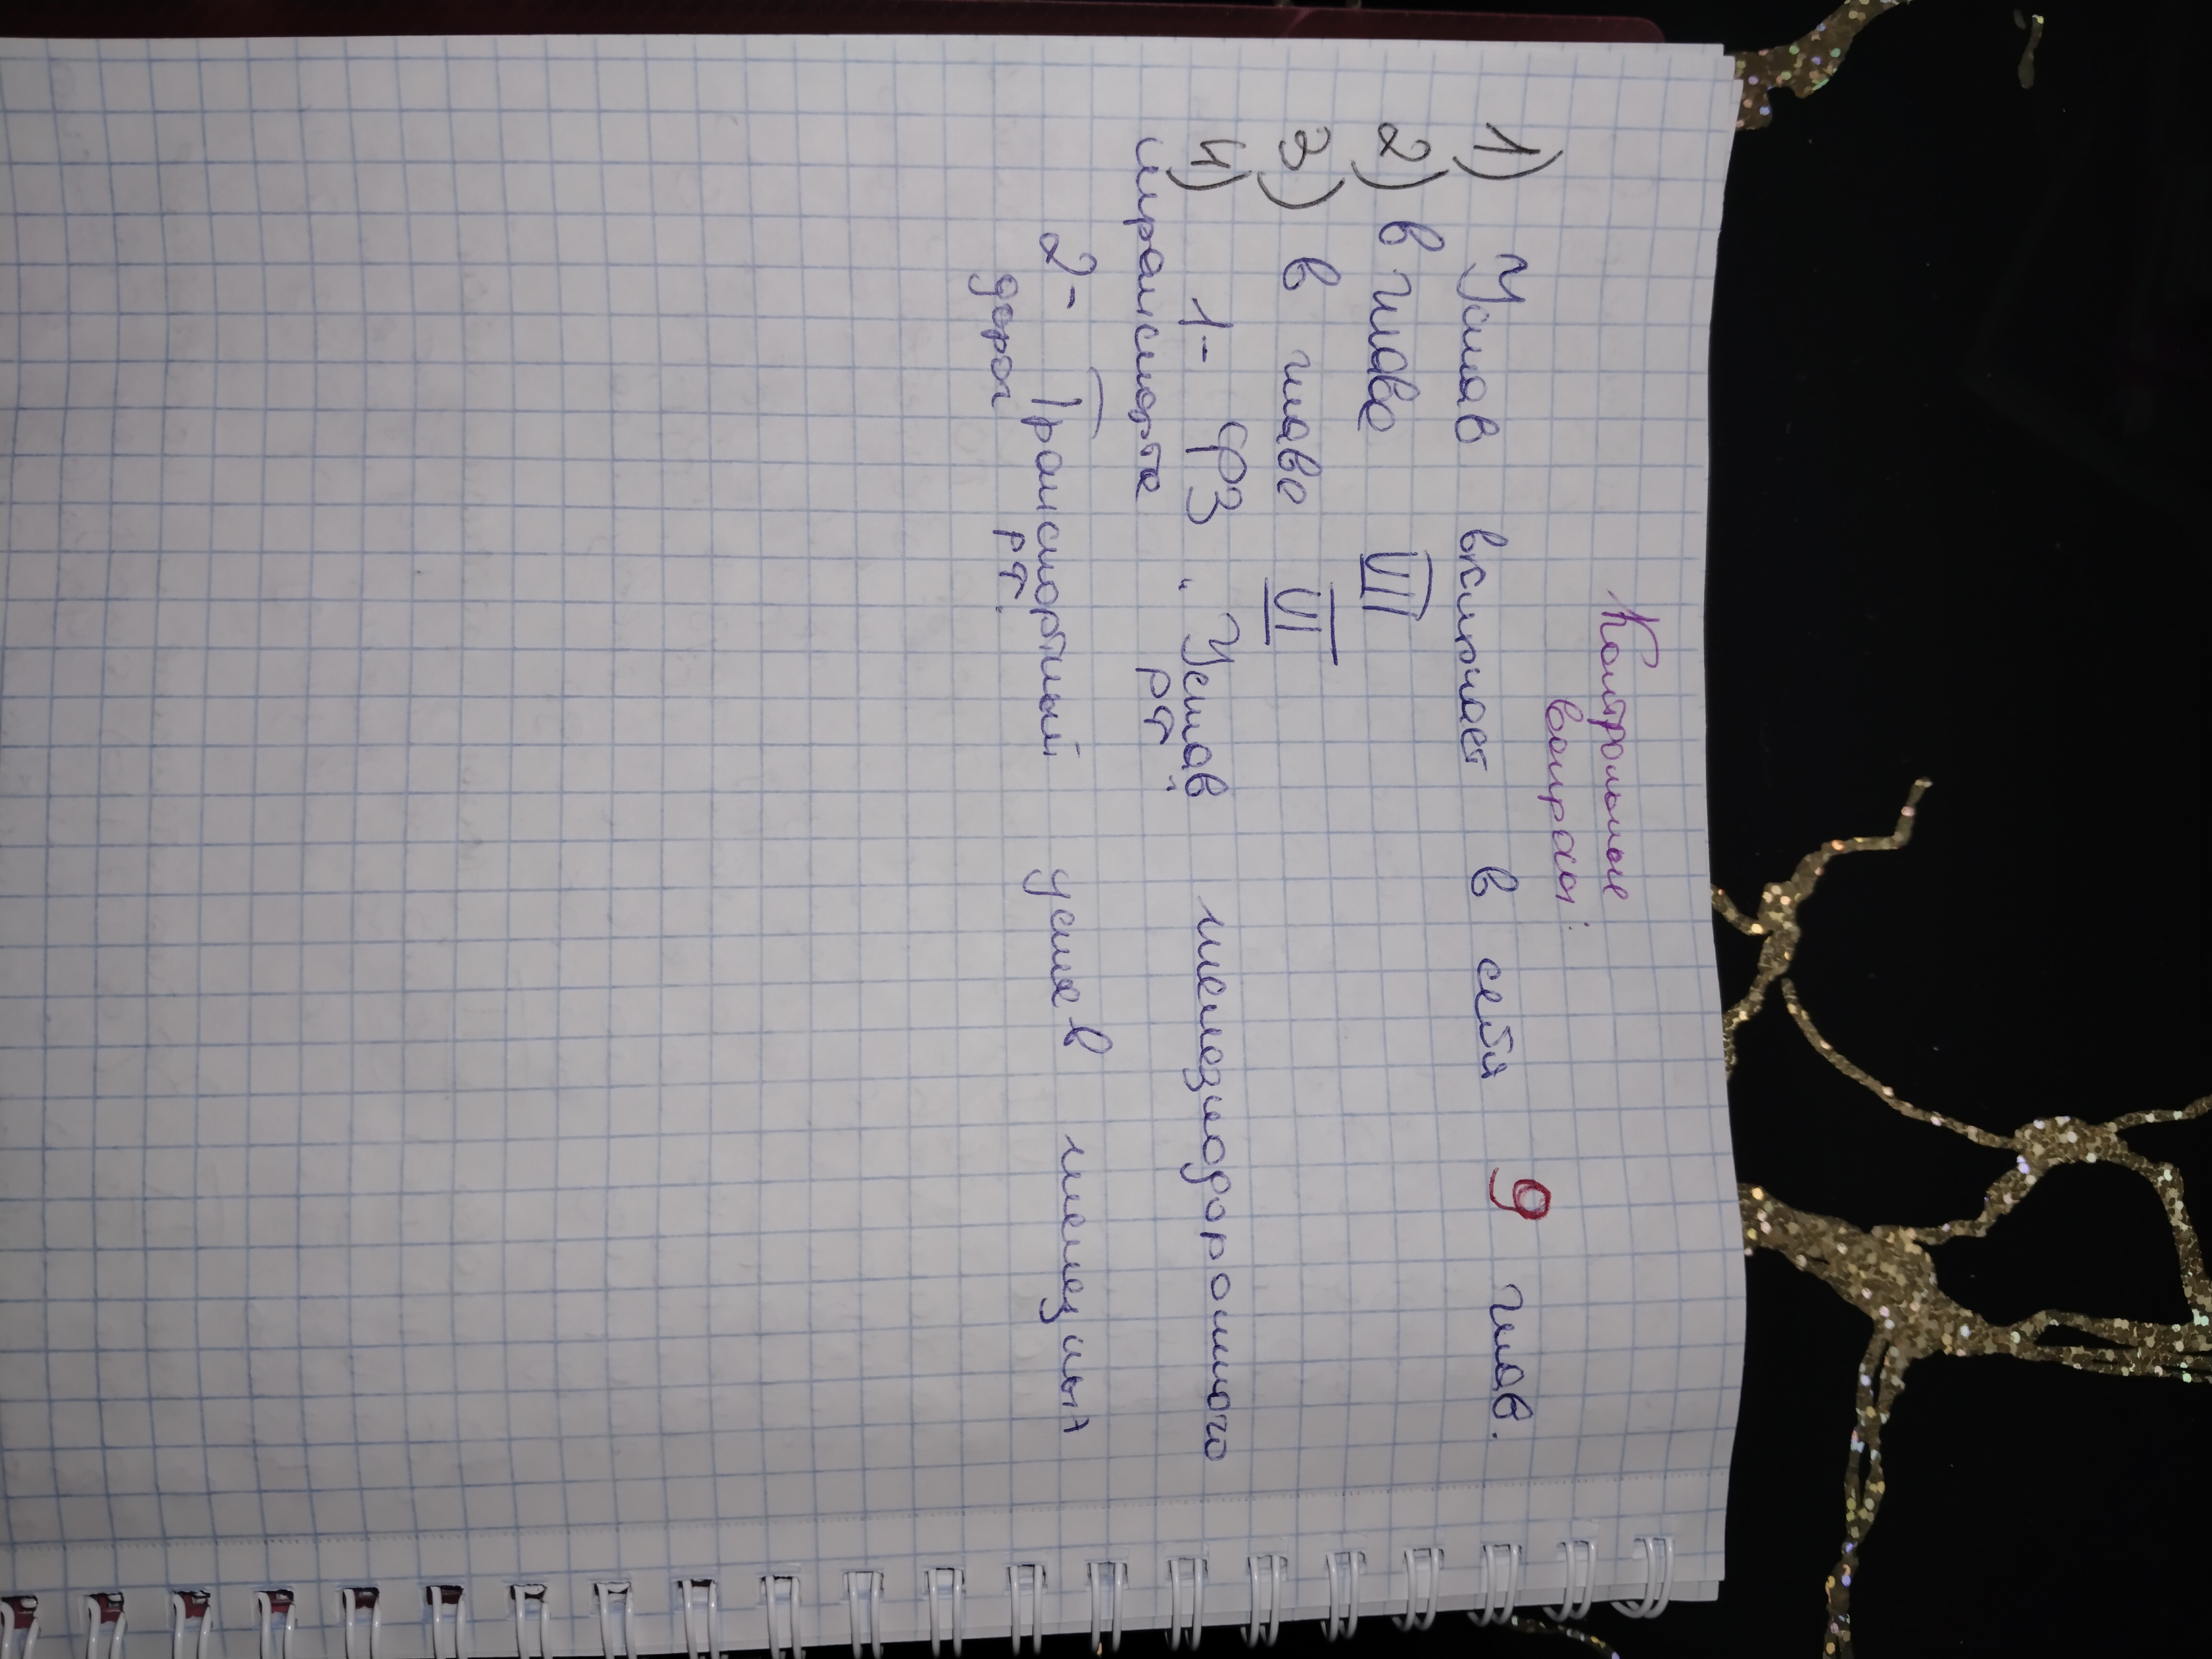 Контрольные
вопросы:
1) Устав включает в себя 9 глав.
2) в главе VII
3) в главе VI
4) 1- ФЗ „Устав железнодорожного
транспорта РФ"
2- Транспортный устав железных
дорог РФ.